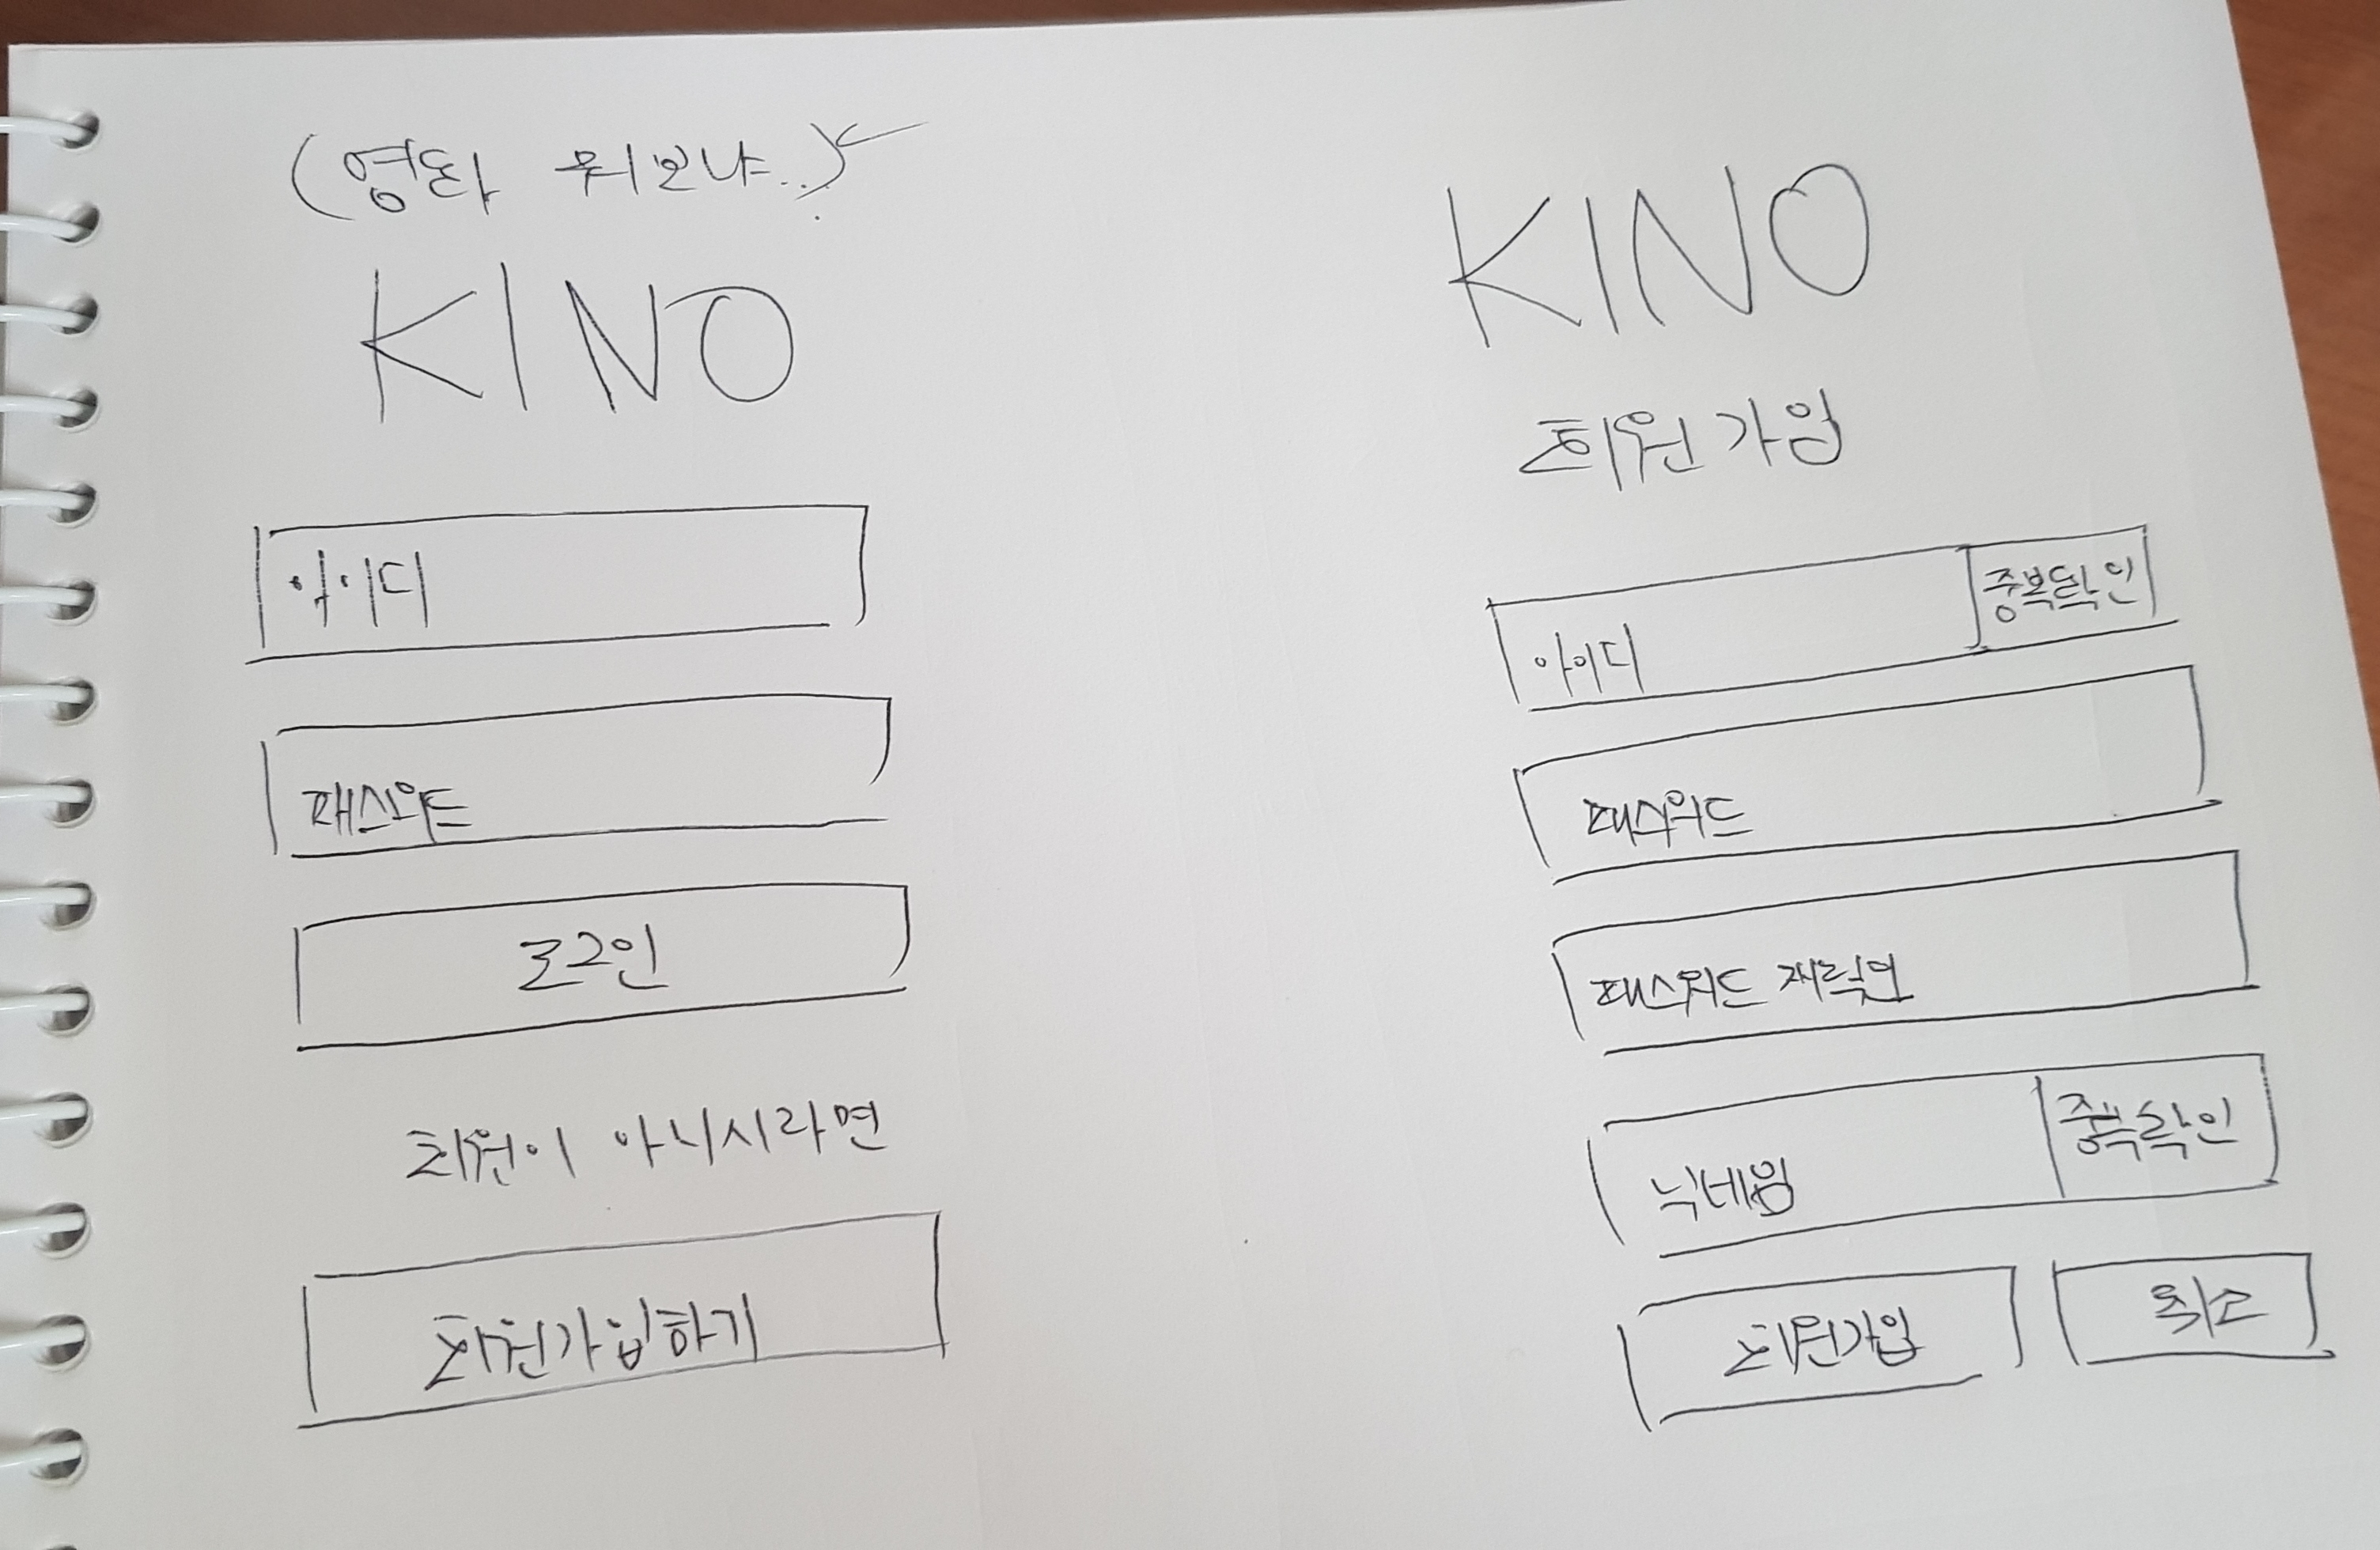 (영화 뭐보냐..)
KINO
아이디
패스워드
로그인
회원이 아니시라면
회원가입하기
KINO
회원가입
아이디 중복확인
패스워드
패스워드 재확인
닉네임 중복확인
회원가입 취소